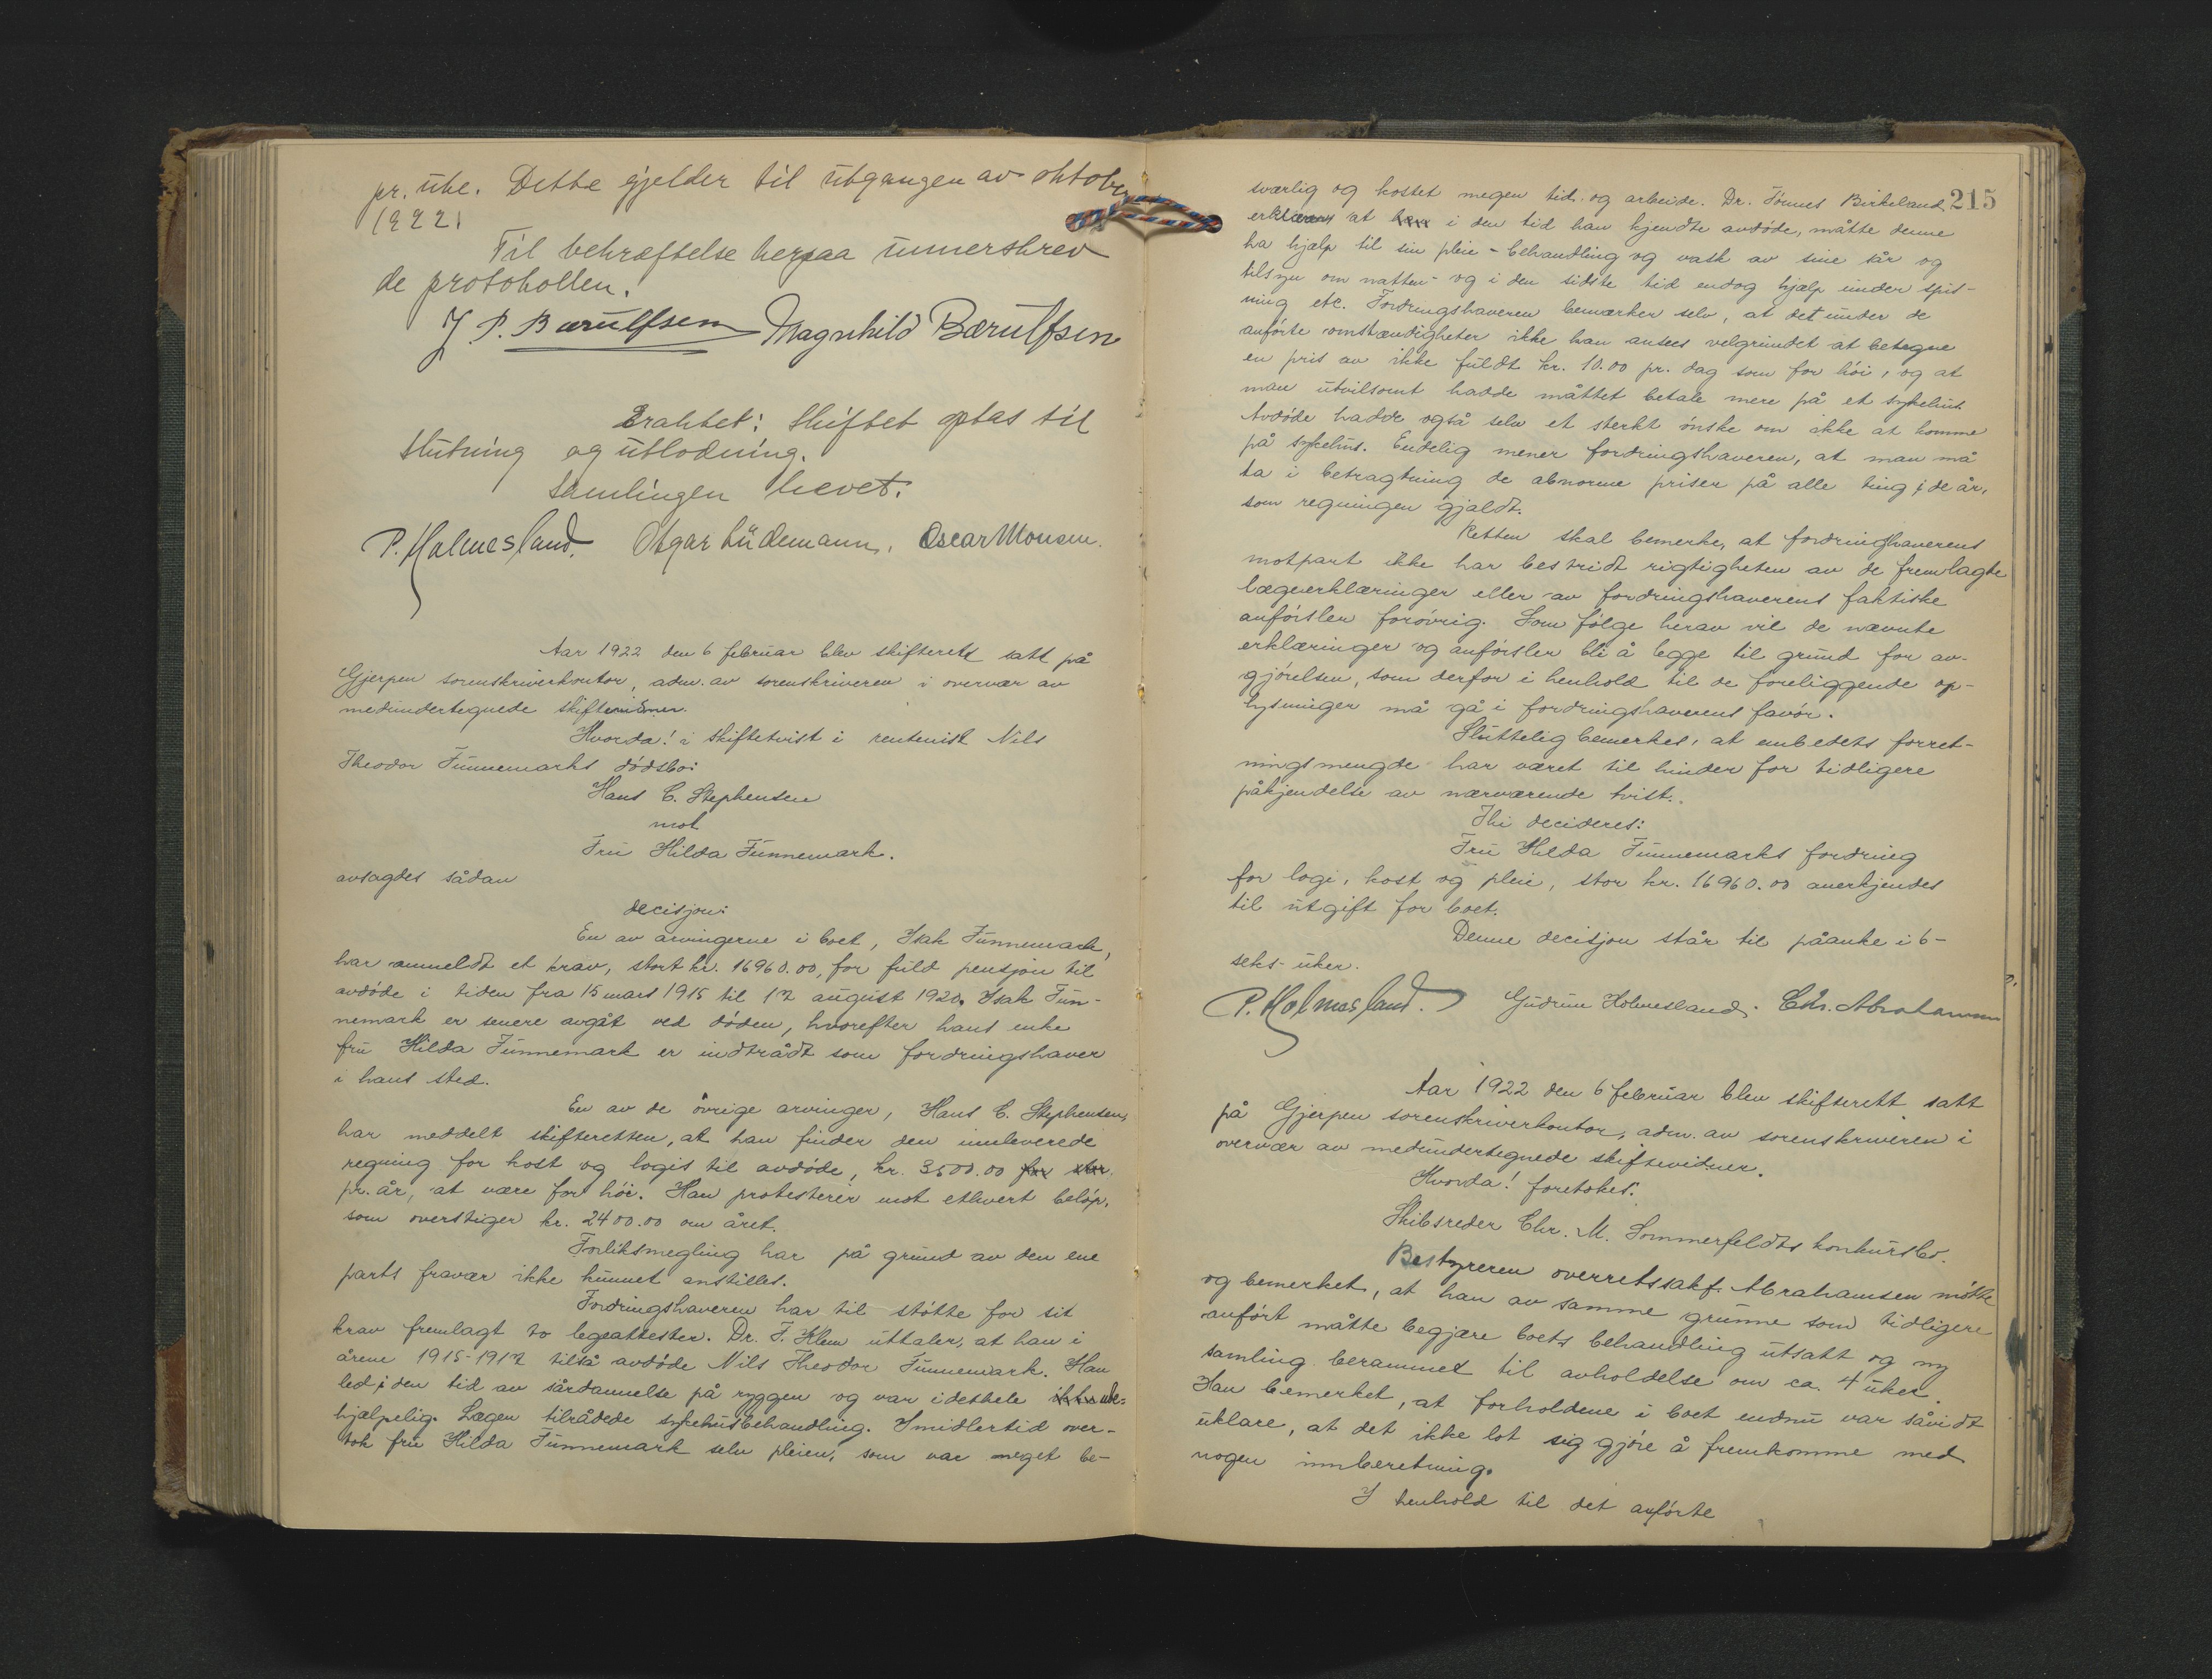 pr. uke. Dette gjelder til utgangen av oktober
1922.
Til bekræftelse herpaa unnerskrev
de protokollen.
J. P. Bærulfsen Magnhild Bærulfsen
Eraktet: Skiftet optas til
slutning og utlodning.
Samlingen hevet.
P. Holmesland. Otgar Lüdemann. Oscar Monsen.
Aar 1922 den 6 februar blev skifterett satt på
Gjerpen sorenskriverkontor, adm. av sorenskriveren i overvær av
medundertegnede skiftevidner.
Hvorda! i skiftetvist i rentenist Nils
Theodor Funnemarks dødsbo:
Hans C. Stephensen
mot
Fru Hilda Funnemark.
avsagdes sådan
decisjon:
En av arvingerne i boet, Isak Funnemark,
har anmeldt et krav, stort kr. 16960.00, for fuld pensjon til
avdøde i tiden fra 15 mars 1915 til 17 august 1920. Isak Fun-
nemark er senere avgåt ved døden, hvorefter hans enke
fru Hilda Funnemark er indtrådt som fordringshaver
i hans sted.
En av de øvrige arvinger, Hans C. Stephensen,
har meddelt skifteretten, at han finder den innleverede
regning for kost og logis til avdøde, kr. 3500.00 for
pr. år, at være for høi. Han protesterer mot ethvert beløp,
som overstiger kr. 2400.00 om året.
Forliksmegling har på grund av den ene
parts fravær ikke kunnet anstilles.
Fordringshaveren har til støtte for sit
krav fremlagt to legeattester. Dr. F. Klem uttaler, at han i
årene 1915-1917 tilså avdøde Nils Theodor Funnemark. Han
led i den tid av sårdannelse på ryggen og var idethele ube-
hjælpelig. Lægen tilrådede sykehusbehandling. Imidlertid over-
tok fru Hilda Funnemark selv pleien, som var meget be-
215
sværlig og kostet megen tid og arbeide. Dr. Tønnes Birkeland
erklærer at i den tid han kjendte avdøde, måtte denne
ha hjælp til sin pleie - behandling og vask av sine sår og
tilsyn om natten - og i den sidste tid endog hjælp under spis-
ning etc. Fordringshaveren bemerker selv, at det under de
anførte omstændigheter ikke kan ansees velgrundet at betegne
en pris av ikke fuldt kr. 10.00 pr. dag som for høi, og at
man utvilsomt hadde måttet betale mere på et sykehus.
Avdøde hadde også selv et sterkt ønske om ikke at komme
på sykehus. Endelig mener fordringshaveren, at man må
ta i betragtning de abnorme priser på alle ting i de år,
som regningen gjaldt.
Retten skal bemerke, at fordringshaverens
motpart ikke har bestridt rigtigheten av de fremlagte
lægeerklæringer eller av fordringshaverens faktiske
anførsler forøvrig. Som følge herav vil de nævnte
erklæringer og anførsler bli å legge til grund for av-
gjørelsen, som derfor i henhold til de foreliggende op-
lysninger må gå i fordringshaverens favør.
Sluttelig bemerkes, at embedets forret-
ningsmengde har været til hinder for tidligere
påkjendelse av nærværende tvist.
Thi decideres:
Fru Hilda Funnemarks fordring
for logi, kost og pleie, stor kr. 16960.00 anerkjendes
til utgift for boet.
Denne decisjon står til påanke i 6-
seks-uker.
P. Holmesland. Gudrun Holmesland. Chr. Abrahamsen
Aar 1922 den 6 februar blev skifterett satt
på Gjerpen sorenskriverkontor, adm. av sorenskriveren i
overvær av medundertegnede skiftevidner.
Hvorda! foretokes:
Skibsreder Chr. M. Sommerfeldts konkursbo.
Bestyreren overretssakf. Abrahamsen møtte
og bemerket, at han av samme grunne som tidligere
anført måtte begjære boets behandling utsatt og ny
samling berammet til avholdelse om ca. 4 uker.
Han bemerket, at forholdene i boet endnu var såvidt
uklare, at det ikke lot sig gjøre å fremkomme med
nogen innberetning.
I henhold til det anførte